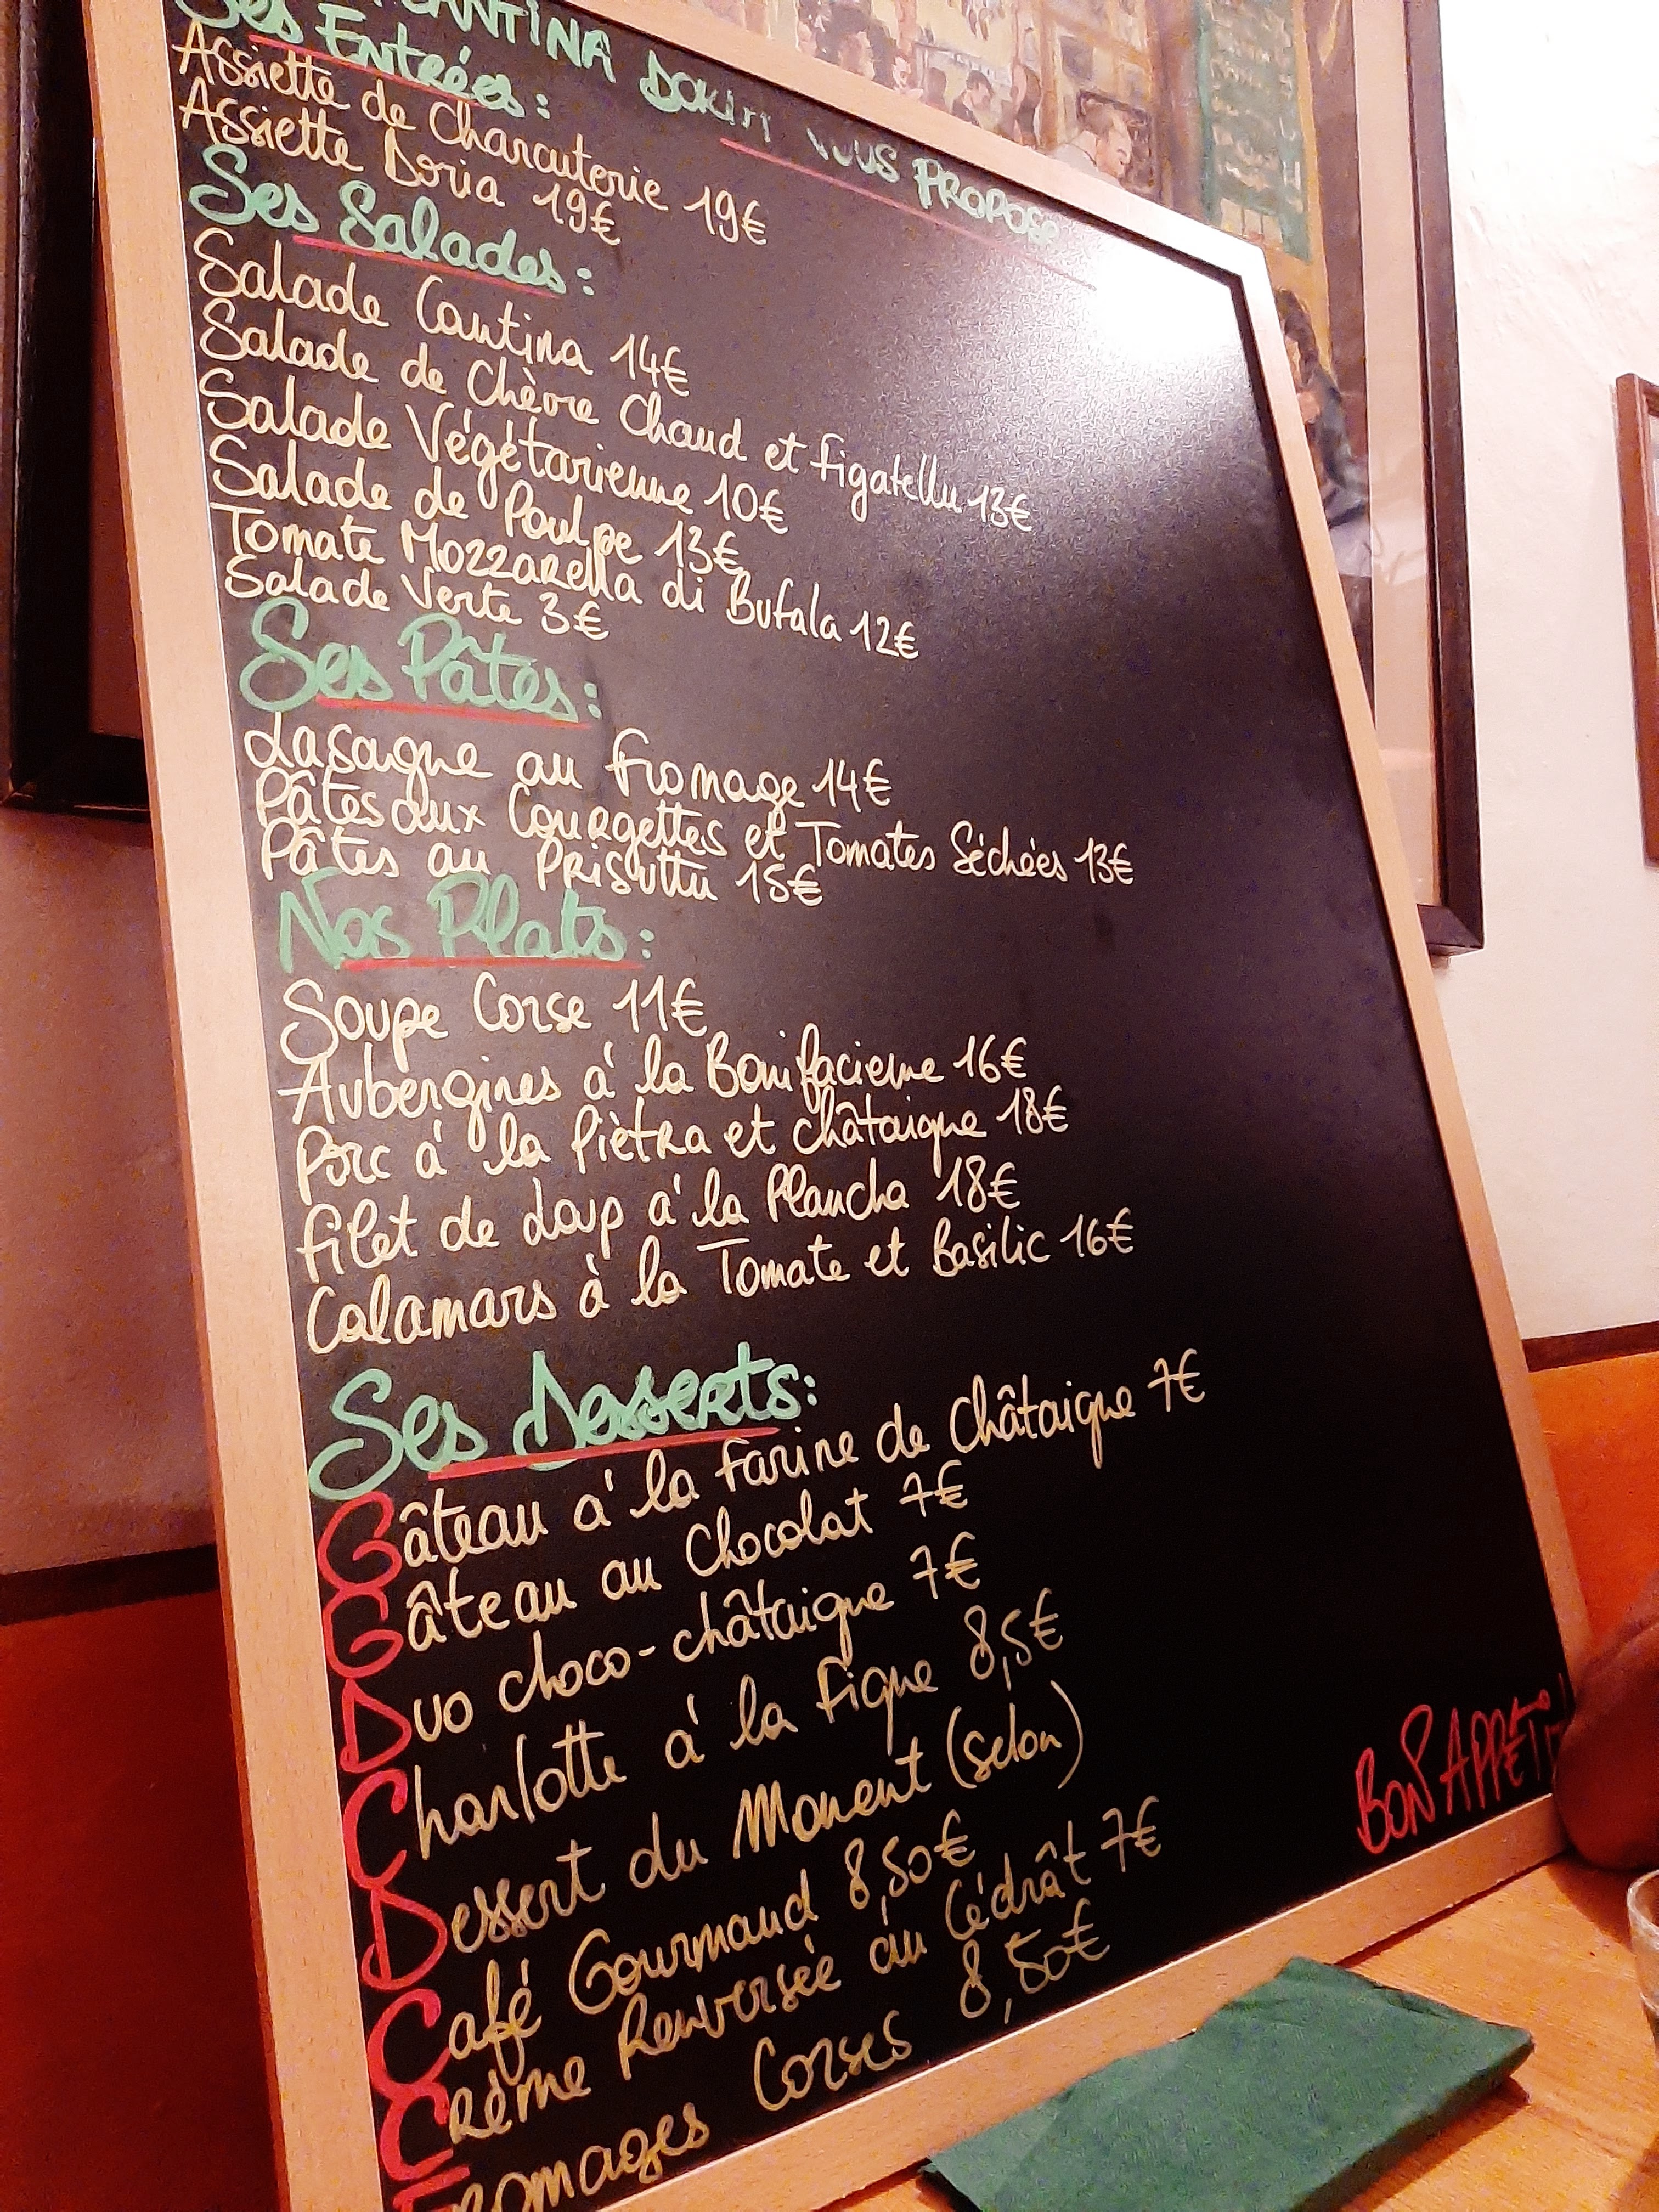 CANTINA DORIA VOUS PROPOSE
Ses Entrées:
Assiette de Charcuterie 19€
Assiette Doria 19€
Ses Salades:
Salade Cantina 14€
Salade de Chèvre Chaud et Figatellu 13€
Salade Végétarienne 10€
Salade de Poulpe 13€
Tomate Mozzarella di Bufala 12€
Salade Verte 3€
Ses Pâtes:
Lasagne au Fromage 14€
Pâtes aux Courgettes et Tomates Séchées 13€
Pâtes au Prisuttu 15€
Nos Plats:
Soupe Corse 11€
Aubergines à la Bonifacienne 16€
Porc à la Piètra et Châtaigne 18€
Filet de Loup à la Plancha 18€
Calamars à la Tomate et Basilic 16€
Ses Desserts:
Gâteau à la Farine de Châtaigne 7€
Gâteau au Chocolat 7€
Duo choco-châtaigne 7€
Charlotte à la Figue 8,5€
Dessert du Moment (selon)
Café Gourmand 8,50€
Crème Renversée au Cédrât 7€
Fromages Corses 8,50€
BON APPETIT!